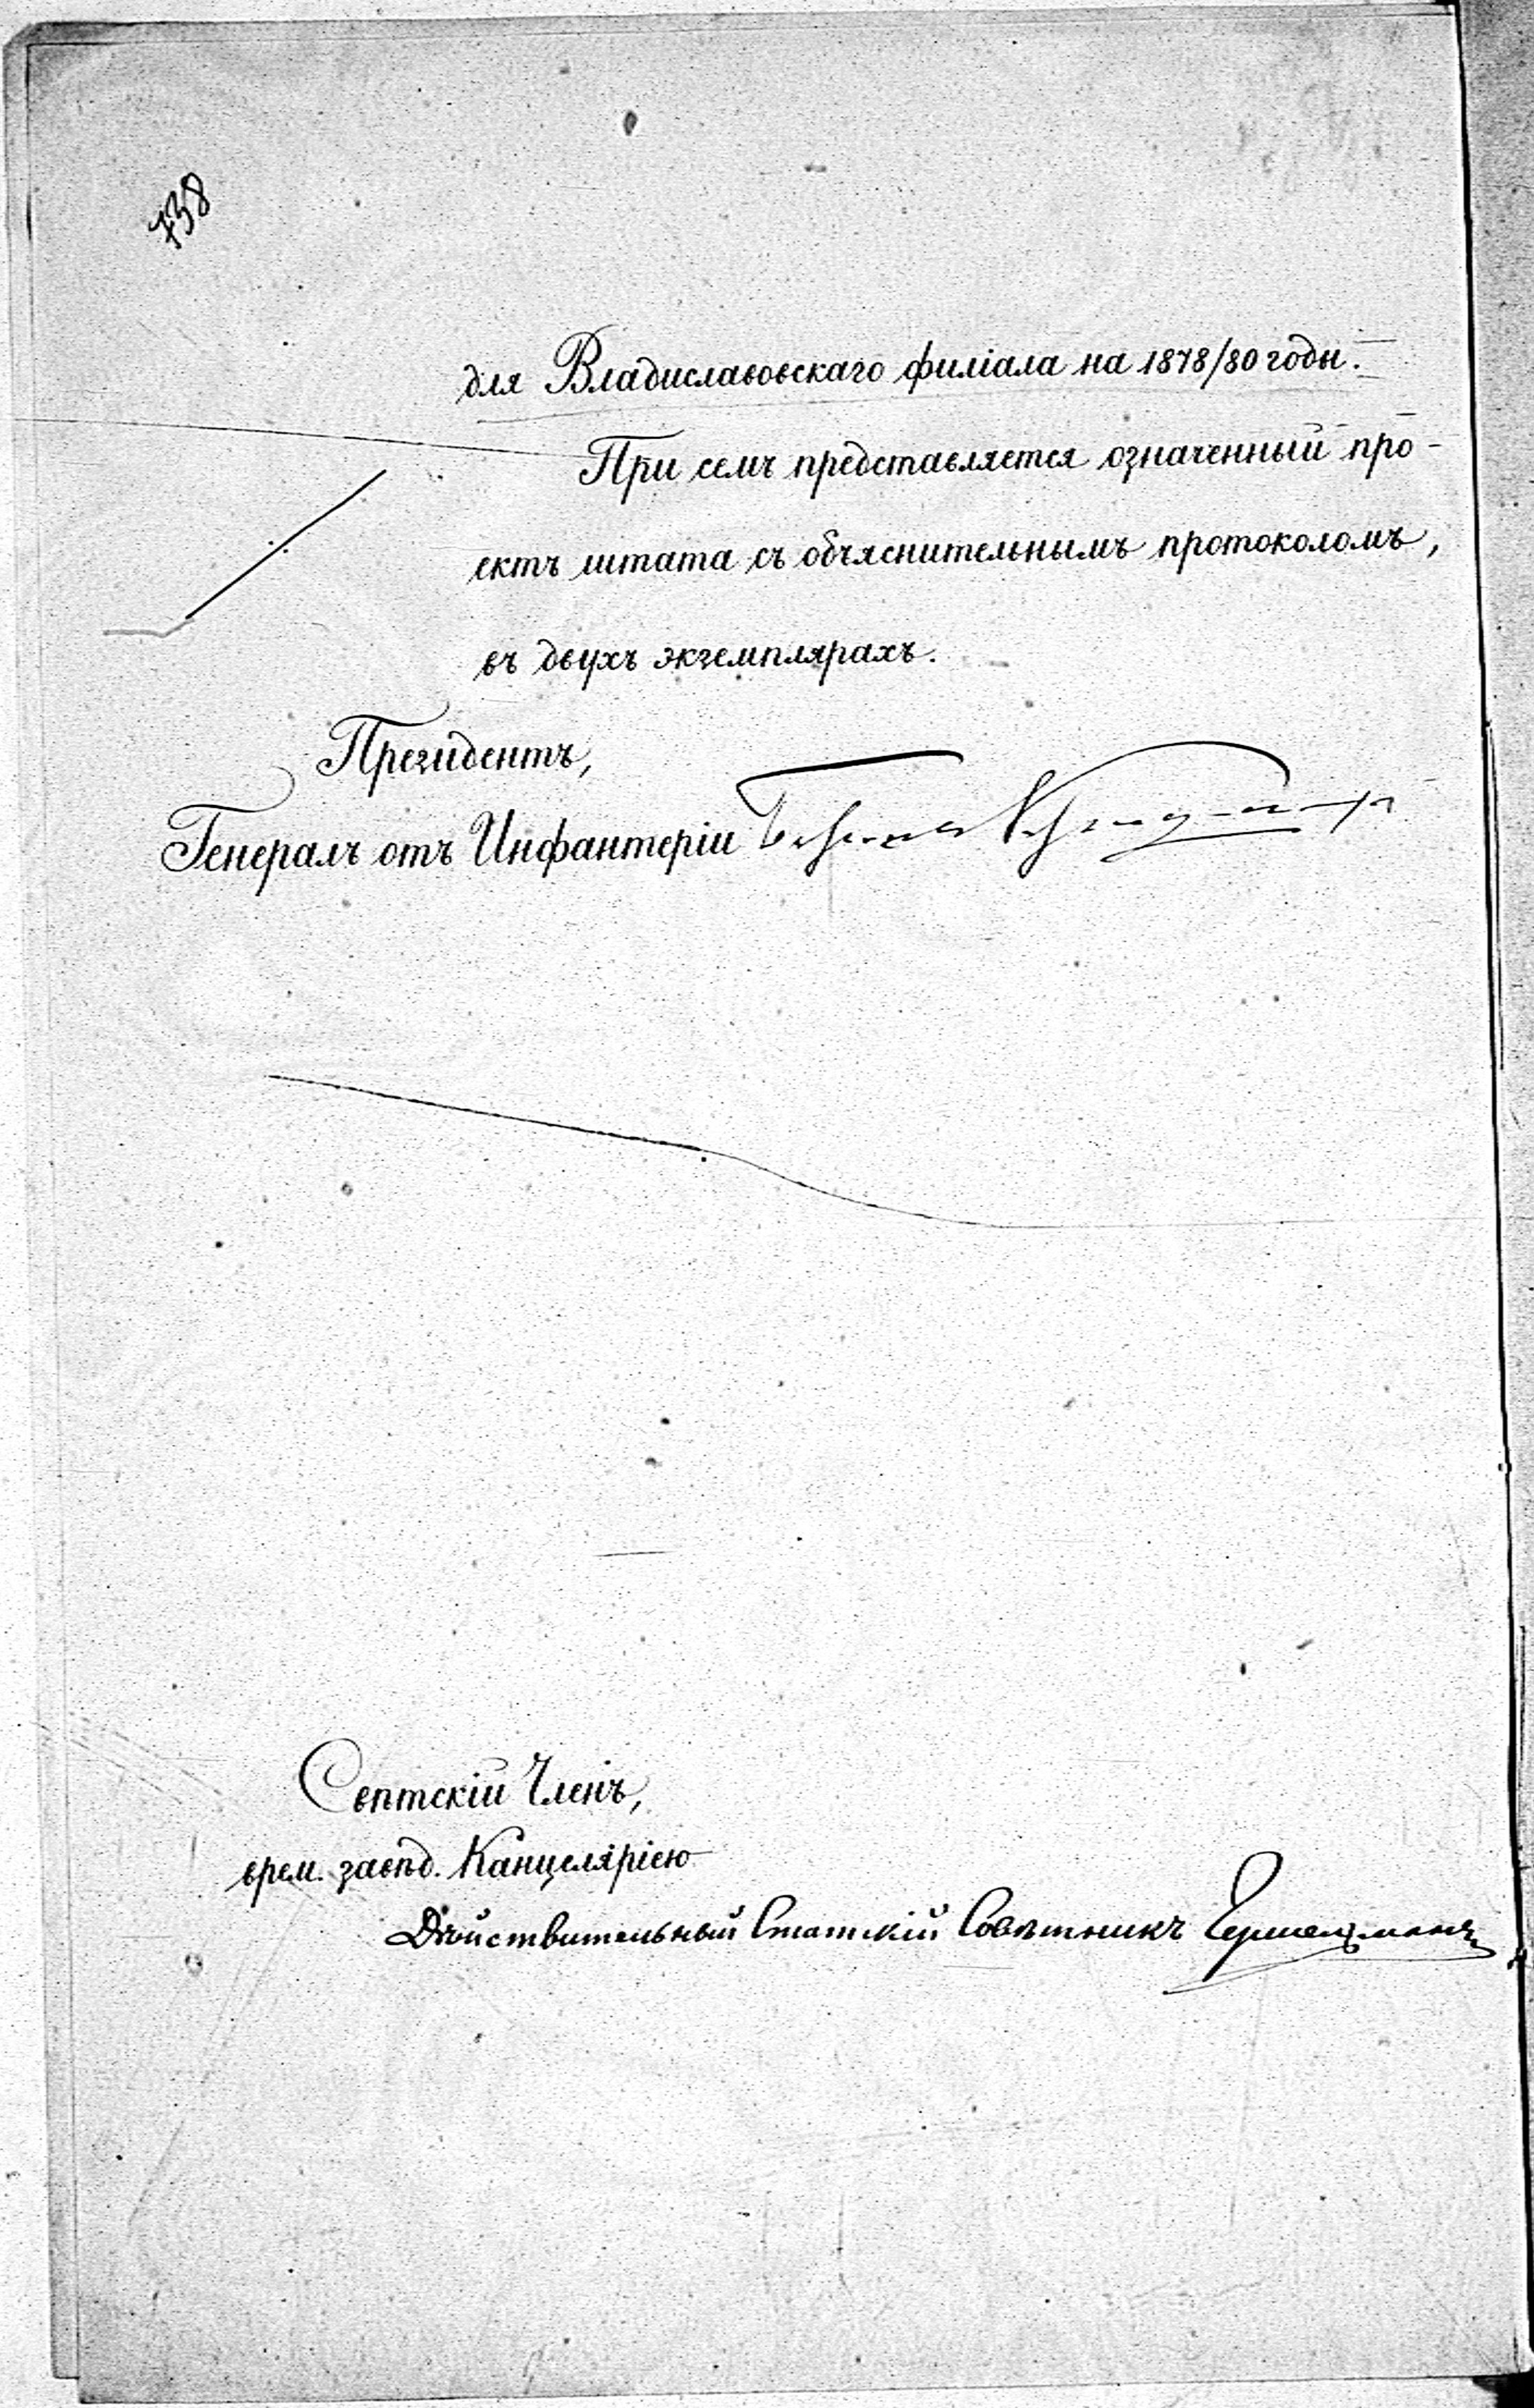 738
для Владиславовскаго филіала на 1878/80 годы.
При семъ представляется означенный про-
ектъ штата съ объяснительнымъ протоколомъ,
въ двухъ экземплярахъ.
Президентъ,
Генералъ отъ Инфантеріи
Свѣтскій Членъ,
врем. завѣд. Канцеляріею
Дѣйствительный Статскій Совѣтникъ Гершельманъ